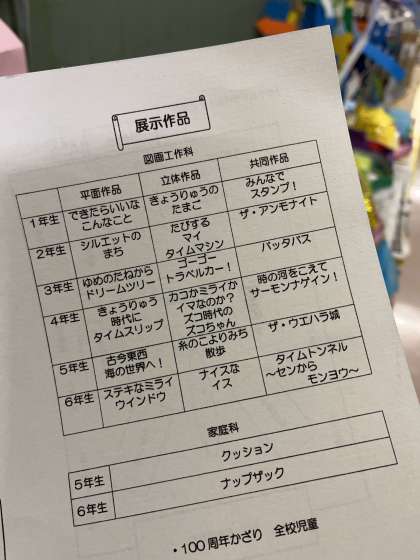 展示作品
図画工作科
平面作品 立体作品 共同作品
1年生 できたらいいな こんなこと きょうりゅうの たまご みんなで スタンプ!
2年生 シルエットの まち たびする マイ タイムマシン ザ・アンモナイト
3年生 ゆめのたねから ドリームツリー ゴーゴー トラベルカー! バッタバス
4年生 きょうりゅう 時代に タイムスリップ カコかミライか イマなのか? ズコ時代の ズコちゃん 時の河をこえて サーモンナゲイン!
5年生 古今東西 海の世界へ! 糸のこよりみち 散歩 ザ・ウエハラ城
6年生 ステキなミライ ウインドウ ナイスな イス タイムトンネル ~センから モンヨウ~
家庭科
5年生 クッション
6年生 ナップザック
・100周年かざり 全校児童